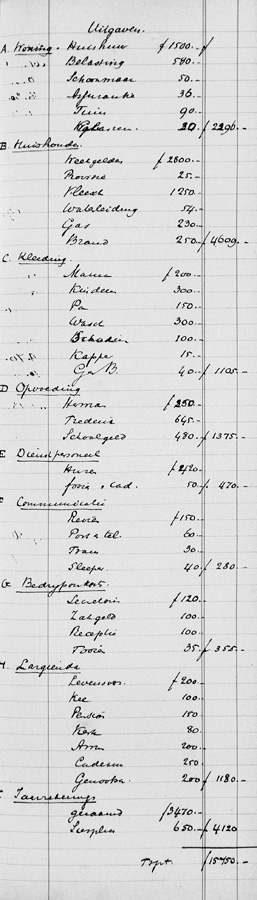 Uitgaven.
A. Woning. Huishuur f 1500.-
Belasting 580.-
Schoonmaak 50.-
Assurantie 36.-
Tuin 90.-
20.- f 2296.-
B. Huishouden
Weekgelden f 2800.-
Provisie 25.-
Vleesch 1250.-
Waterleiding 54.-
Gas 230.-
Brand 250.- f 4609.-
C. Kleeding
Mama f 200.-
Kinderen 300.-
Pa 150.-
Wasch 300.-
100.-
Kapper 15.-
G en B. 40.- f 1105.-
D Opvoeding
Herman f 250.-
Frederik 645.-
Schoolgeld 480.- f 1375.-
E Dienstpersoneel
Huren f 420.-
fooien + cad. 50.- f 470.-
F Communicatie
Reizen f 150.-
Post & tel. 60.-
Tram 30.-
Sleeper 40.- f 280.-
G Bedrijfsonkost.
Secretaris f 120.-
Zakgeld 100.-
Receptie 100.-
Fooien 35.- f 355.-
H. Largienda
Levensver. f 200.-
100.-
Pension 150.-
Kerk 80.-
Armen 200.-
Cadeaux 250.-
Genootsch. 200.- f 1180.-
geraamd f 3470.-
Surplus 650.- f 4120
f 15750.-